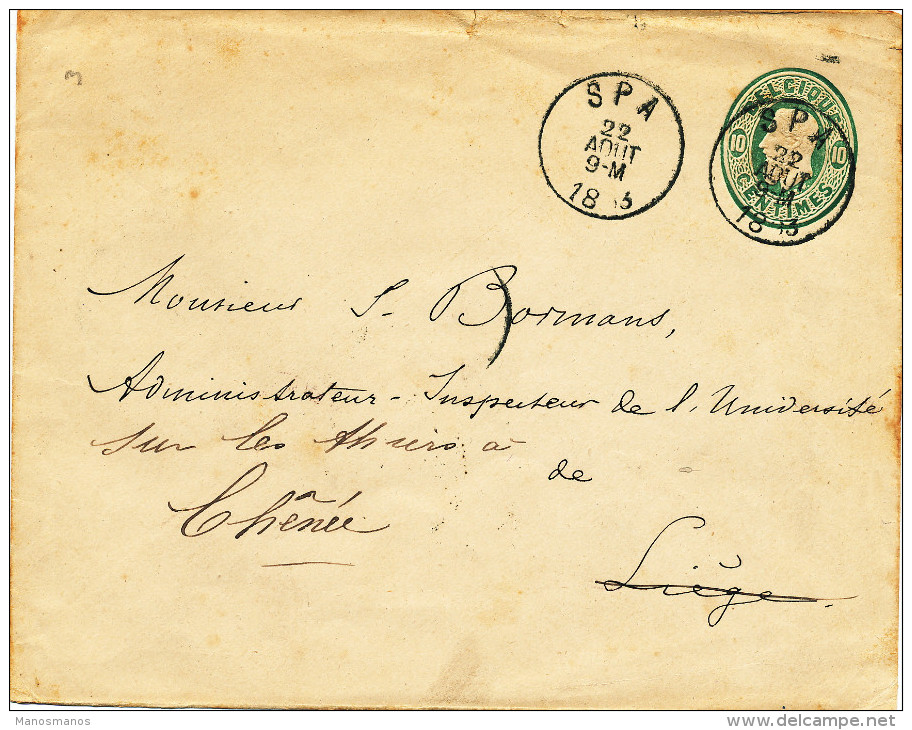 3
SPA
22
AOUT
9-M
18 3
BELGIQUE
10 10
CENTIMES
SPA
22
AOUT
9-M
18 3
Monsieur S. Bormans,
Administrateur-Inspecteur de l'Université
sur les thiers à
de
Chênée
Liège.
Manosmanos
www.delcampe.net